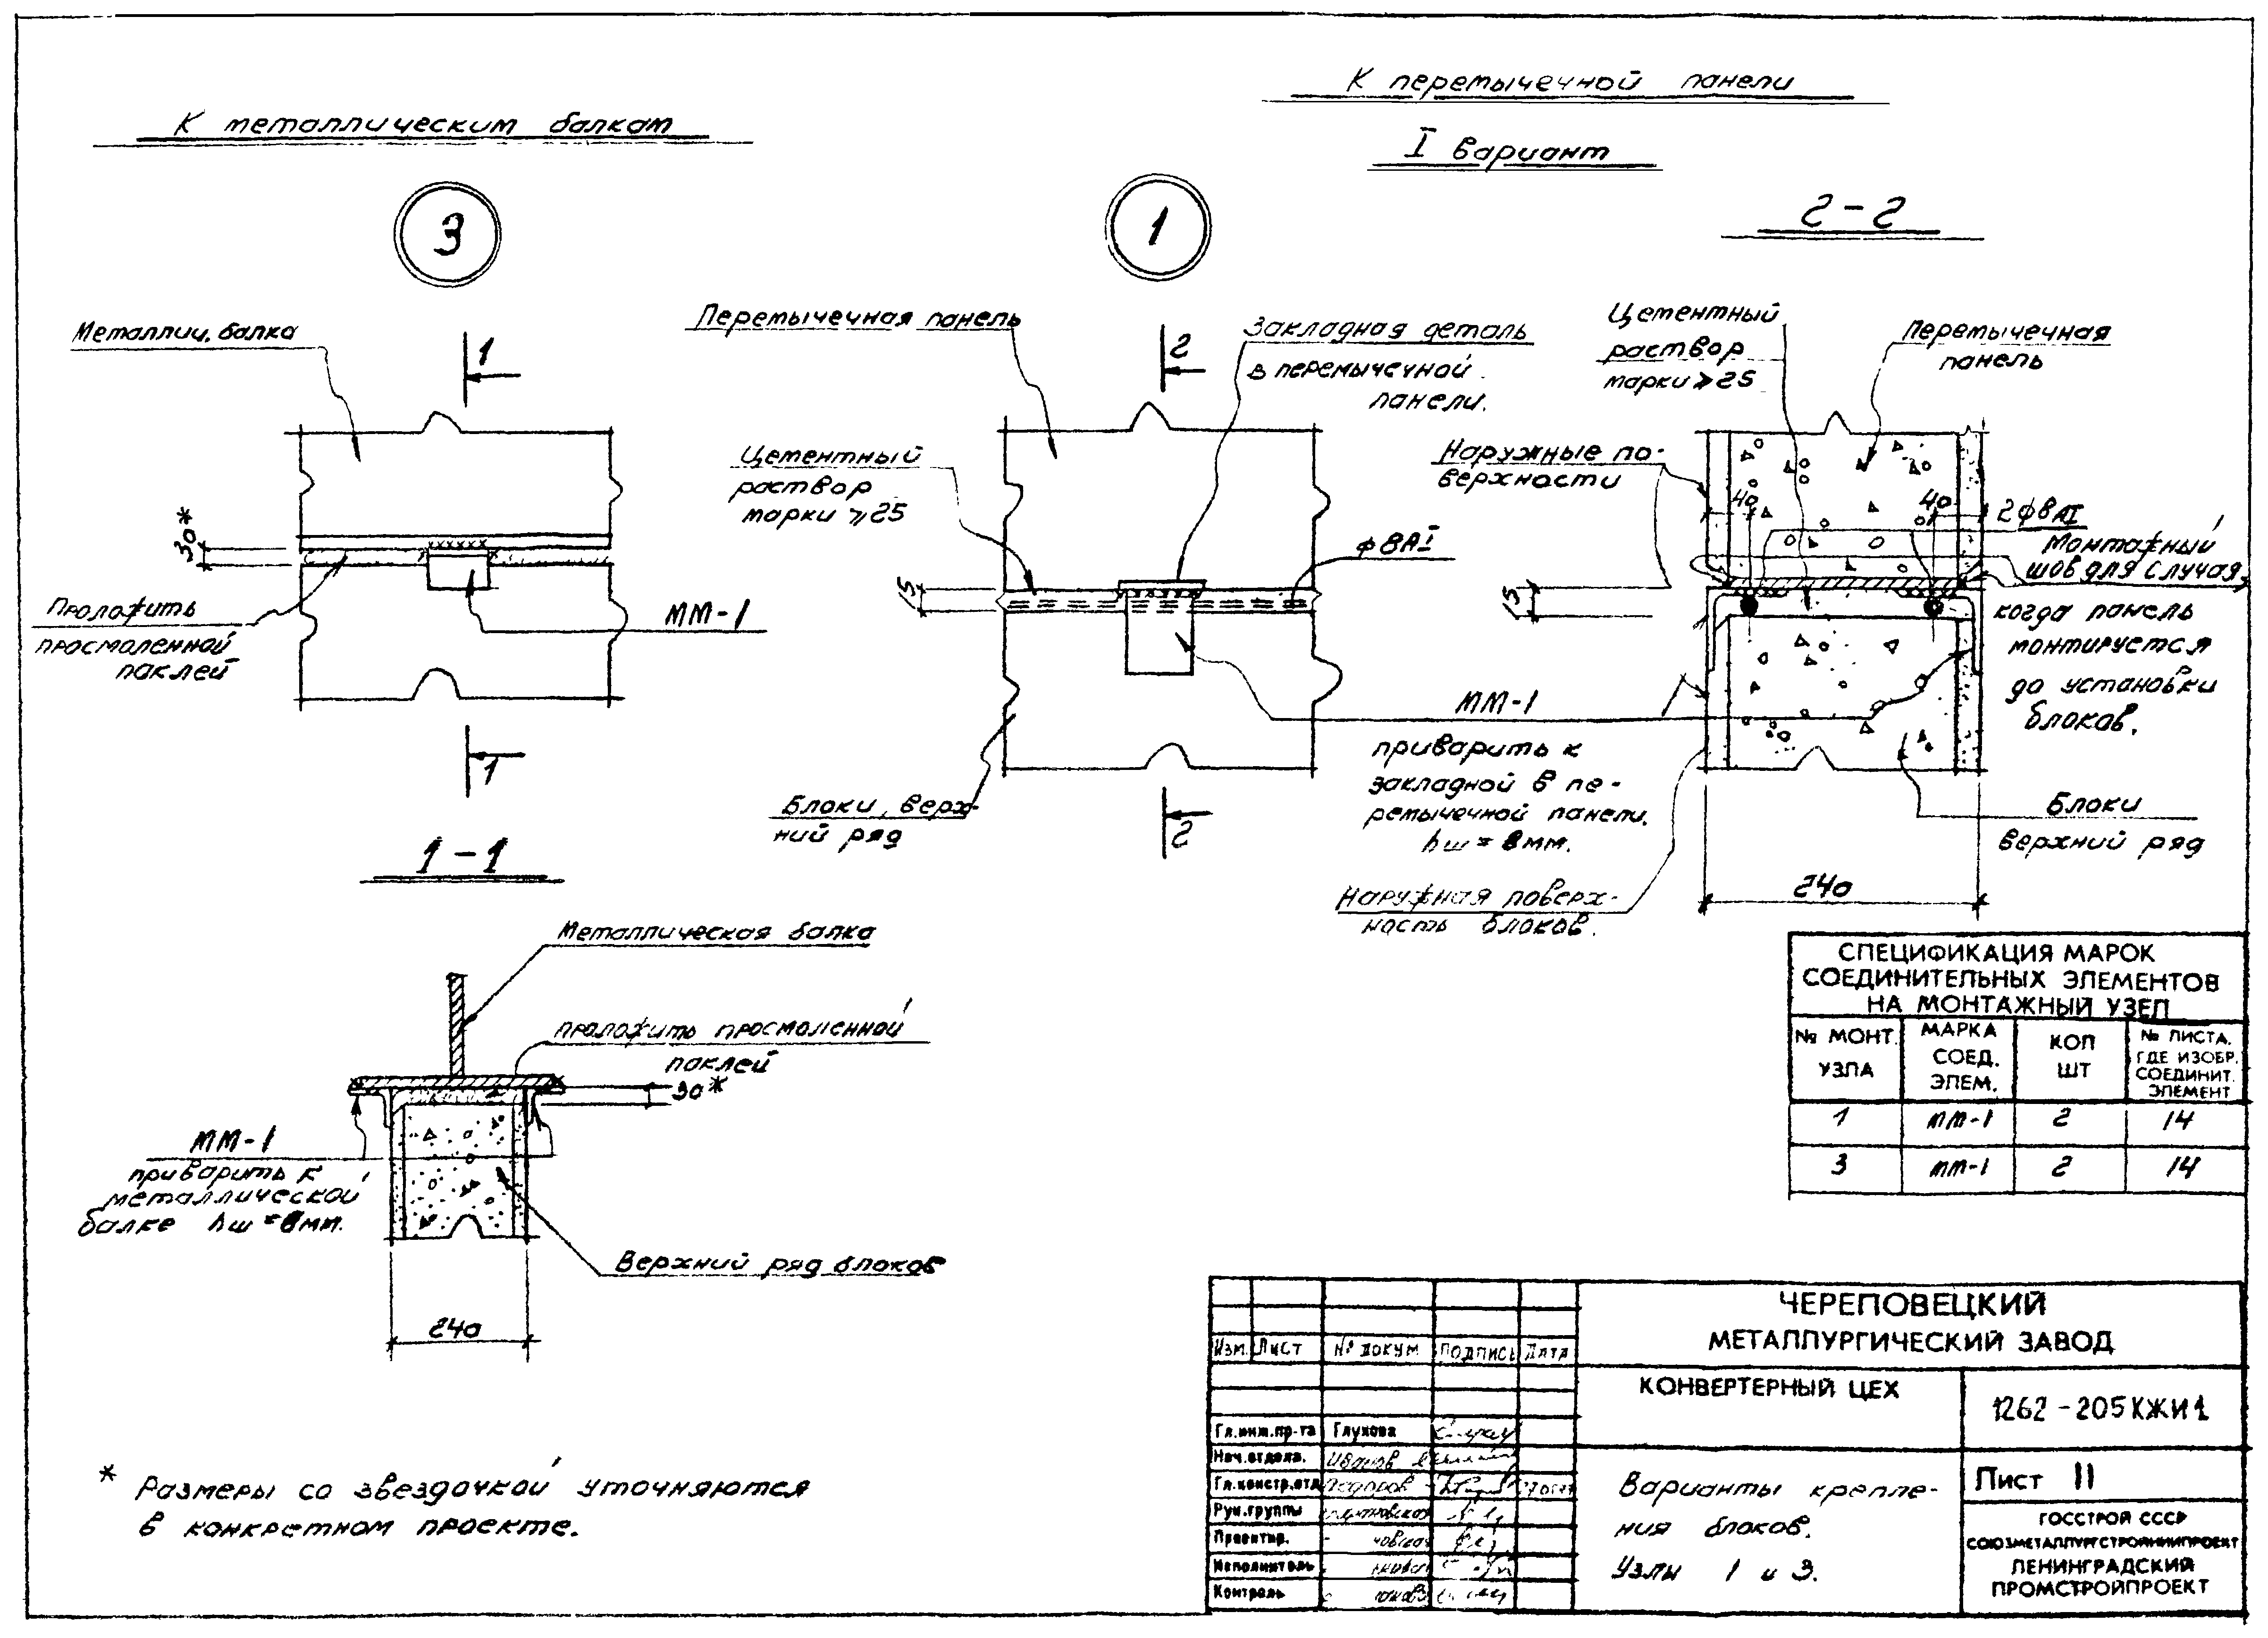 К металлическим балкам
К перемычечной панели
I вариант
3
1
2-2
Металлич. балка
1
30*
Проложить
просмоленной
паклей
ММ-1
1
Перемычечная панель
2
Закладная деталь
в перемычечной
панели.
Цементный
раствор
марки ⩾ 25
ф8АI
15
ММ-1
приварить к
закладной в пе-
ремычечной панели.
hш = 8мм.
Блоки, верх-
ний ряд
2
Цементный
раствор
марки ⩾ 25
Перемычечная
панель
Наружные по-
верхности
40
40
2ф8АI
Монтажный
шов для случая,
когда панель
монтируется
до установки
блоков.
15
Блоки
верхний ряд
Наружная поверх-
ность блоков.
240
1-1
Металлическая балка
Проложить просмоленной
паклей
30*
ММ-1
приварить к
металлической
балке hш = 8мм.
Верхний ряд блоков
240
СПЕЦИФИКАЦИЯ МАРОК
СОЕДИНИТЕЛЬНЫХ ЭЛЕМЕНТОВ
НА МОНТАЖНЫЙ УЗЕЛ
№ МОНТ. УЗЛА
МАРКА СОЕД. ЭЛЕМ.
КОЛ ШТ
№ ЛИСТА, ГДЕ ИЗОБР. СОЕДИНИТ. ЭЛЕМЕНТ
1 ММ-1 2 14
3 ММ-1 2 14
* Размеры со звездочкой уточняются
в конкретном проекте.
Изм. Лист № докум Подпись Дата
Гл.инж.пр-та Глухова
Нач.отдела. Иванов
Гл.констр.отд
Рук.группы
Проектир.
Исполнитель
Контроль
ЧЕРЕПОВЕЦКИЙ
МЕТАЛЛУРГИЧЕСКИЙ ЗАВОД
КОНВЕРТЕРНЫЙ ЦЕХ
1262-205КЖИ1
Варианты крепле-
ния блоков.
Узлы 1 и 3.
Лист 11
ГОССТРОЙ СССР
СОЮЗМЕТАЛЛУРГСТРОЙНИИПРОЕКТ
ЛЕНИНГРАДСКИЙ
ПРОМСТРОЙПРОЕКТ